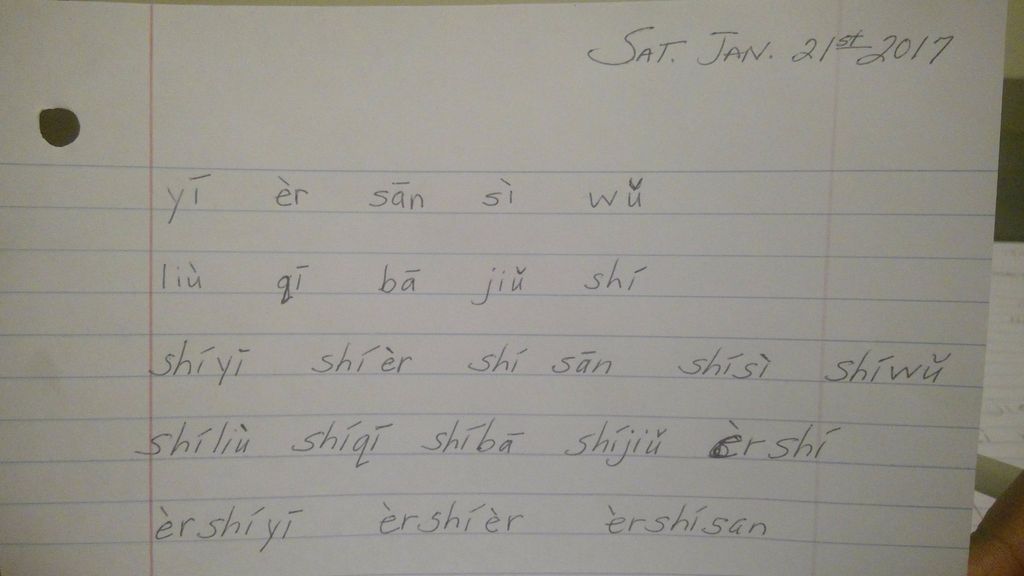 SAT. JAN. 21st 2017
yī èr sān sì wǔ
liù qī bā jiǔ shí
shíyī shíèr shí sān shísì shíwǔ
shíliù shíqī shíbā shíjiǔ èrshí
èrshíyī èrshíèr èrshísan